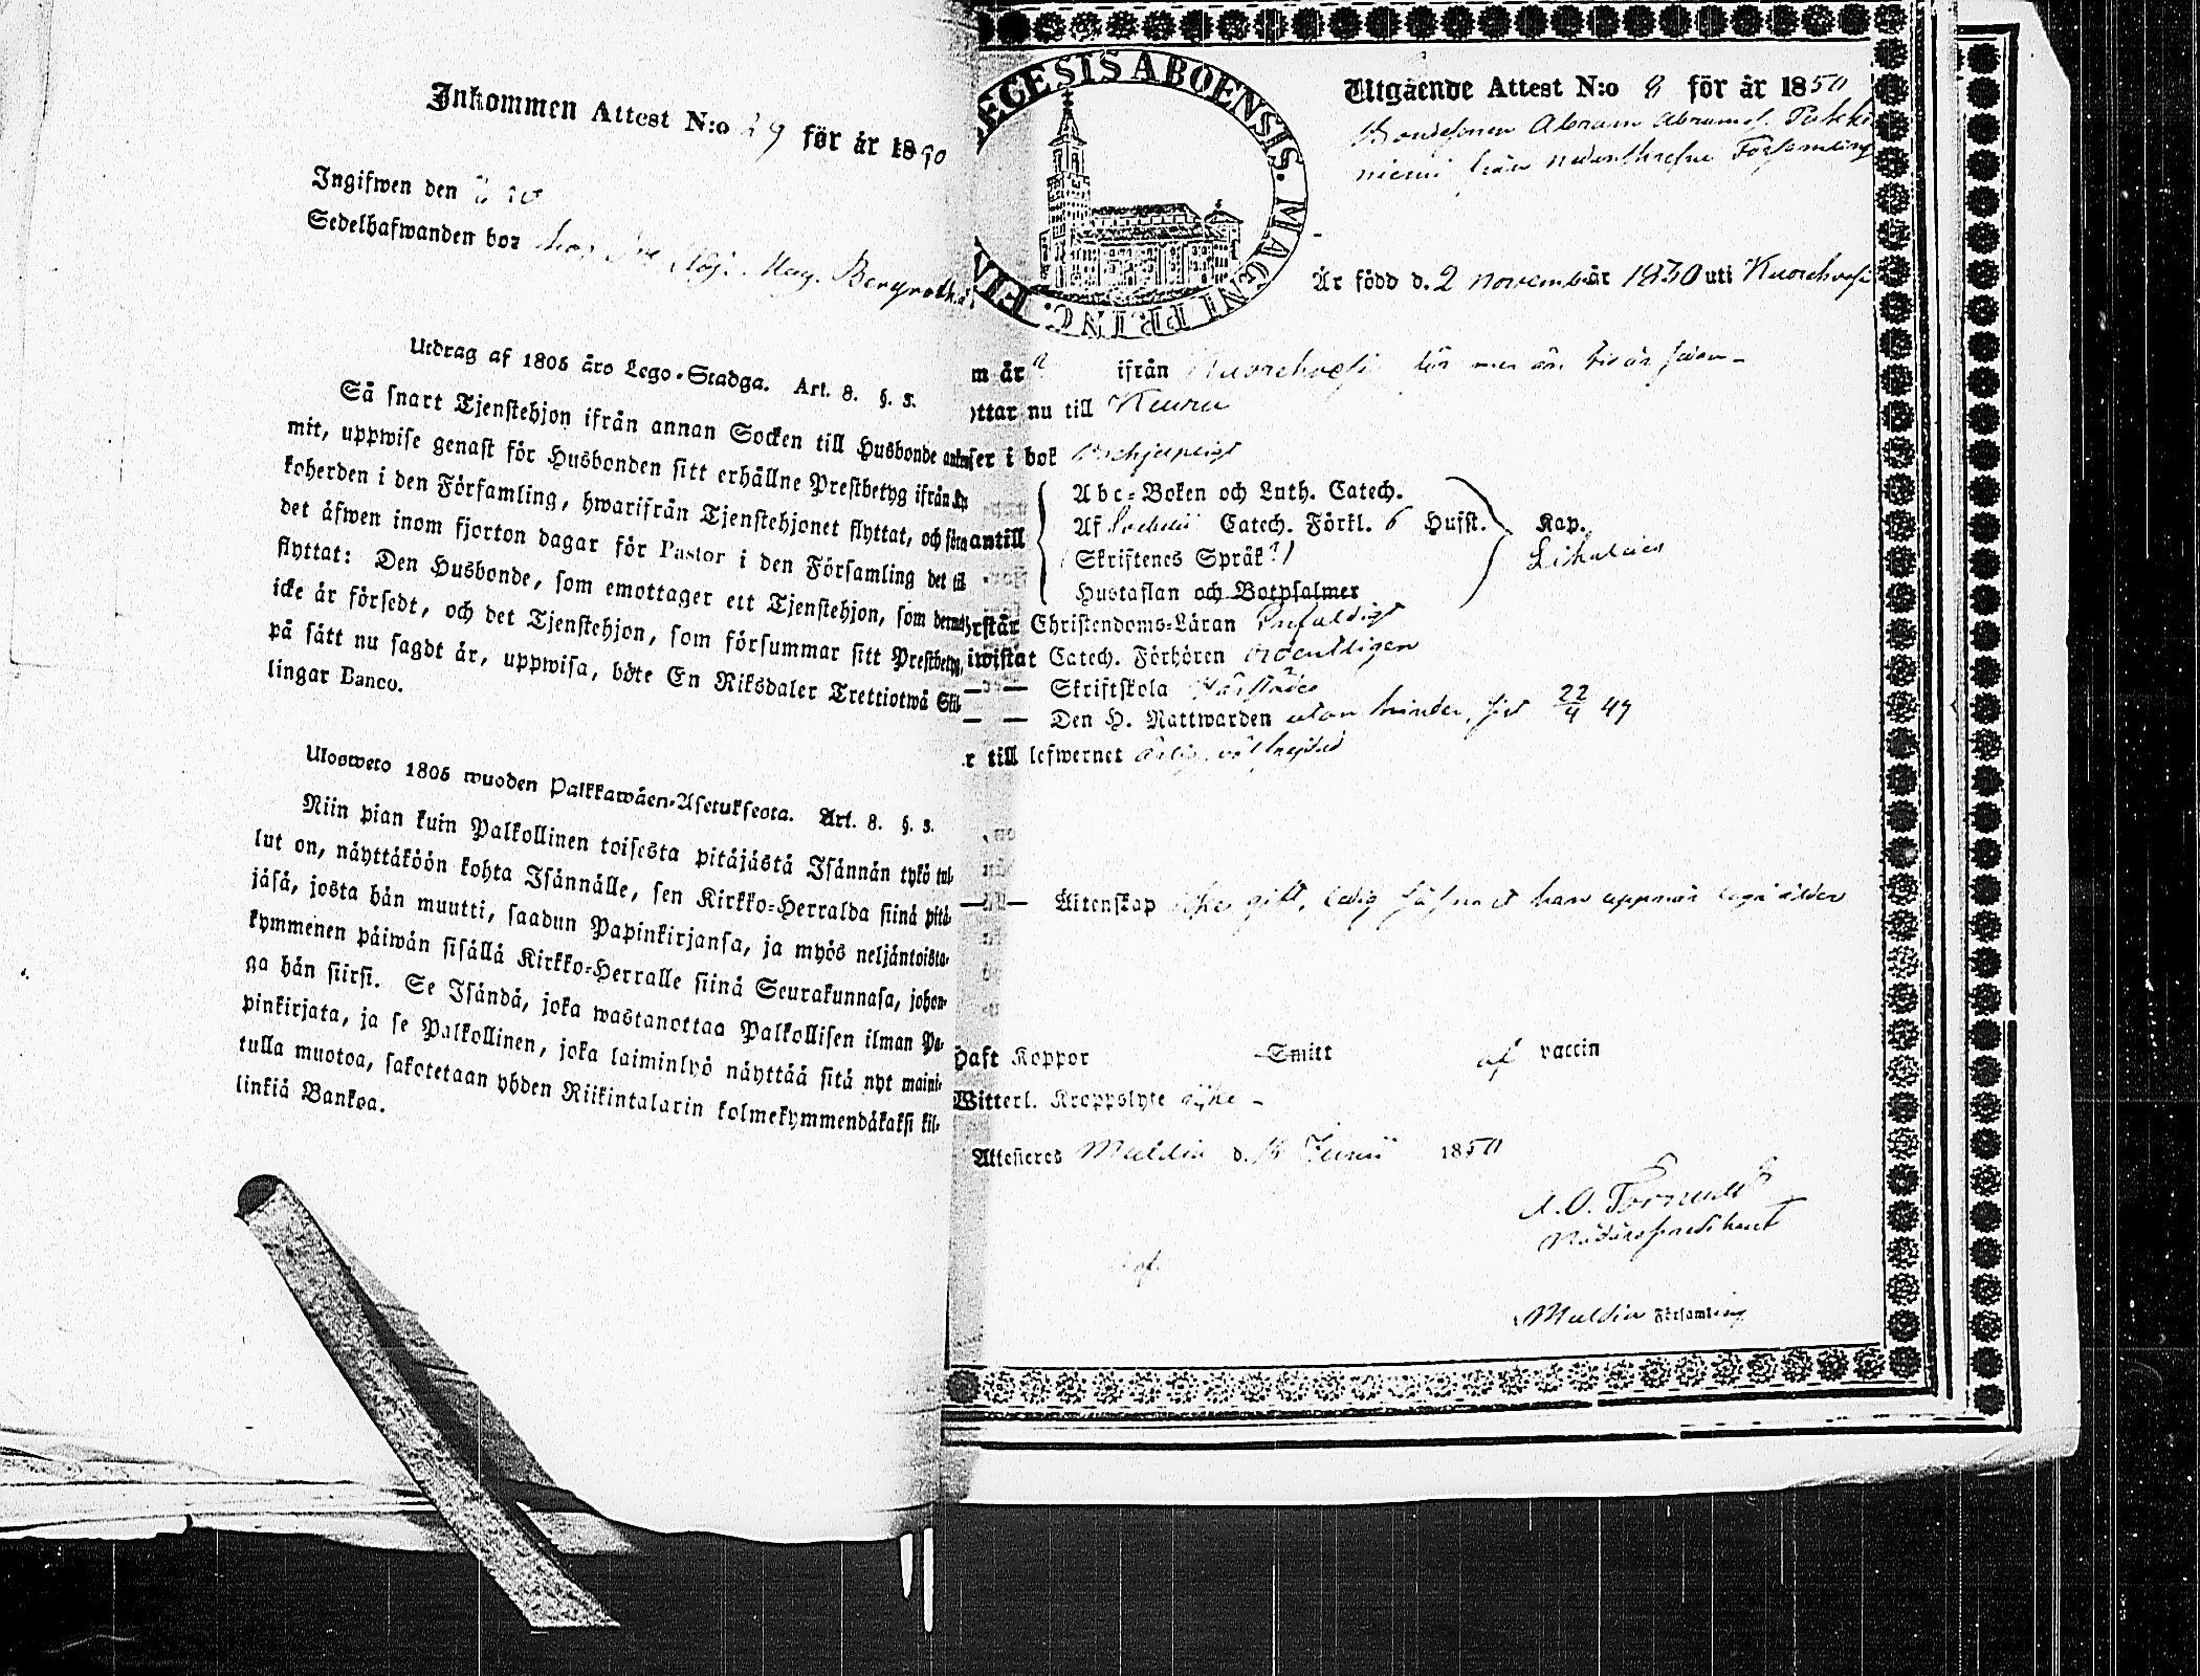 Inkommen Attest N:o 29 för år 1850
Ingifwen den
Sedelhafwanden bor hos Maj. Bergroth
Utdrag af 1805 års Lego-Stadga. Art. 8. §. 5.
Så snart Tjenstehjon ifrån annan Socken till Husbonde
mit, uppwise genast för Husbonden sitt erhållne Prestbetyg ifrån
koherden i den Församling, hwarifrån Tjenstehjonet flyttat, och
det äfwen inom fjorton dagar för Pastor i den Församling det til
flyttat: Den Husbonde, som emottager ett Tjenstehjon, som
icke är försedt, och det Tjenstehjon, som försummar sitt Prestbetyg,
på sätt nu sagdt är, uppwisa, böte En Riksdaler Trettiotwå Skil-
lingar Banco.
Ulosweto 1805 wuoden Palkkawäen-Asetuksesta. Art. 8. §. 5.
Niin pian kuin Palkollinen toisesta pitäjästä Isännän tykö tul-
lut on, näyttäköön kohta Isännälle, sen Kirkko-Herralda siinä pitä-
jäsä, josta hän muutti, saadun Papinkirjansa, ja myös neljäntoista-
kymmenen päiwän sisällä Kirkko-Herralle siinä Seurakunnasa, johon-
ga hän siirsi. Se Isändä, joka wastanottaa Palkollisen ilman Pa-
pinkirjata, ja se Palkollinen, joka laiminlyö näyttää sitä nyt maini-
tulla muotoa, sakotetaan yhden Riikintalarin kolmekymmendäkaksi kil-
linkiä Bankoa.
EGESIS ABOENSIS. MAGNI PRINC. FIN
Utgående Attest N:o 8 för år 1850
Bondesonen Abram Abramss. Pukki
niemi från nedanskrefne Församling
Är född d. 2 november år 1830 uti Kuorehvesi
m år ifrån Kuorehvesi för mer än tio år sedan -
ttar nu till Keuru
ser i bok
antill
Abc-Boken och Luth. Catech.
Af Catech. Förkl. 6 Hufst. Kap.
(Skriftenes Språk?)
Likaledes
Hustaflan och Botpsalmer
rstår Christendoms-Läran Enfaldigt
iwistat Catech. Förhören ordentligen
— — Skriftskola
— — Den H. Nattwarden utan hinder, sist 22/4 49
r till lefwernet ärlig, välfrejdad
— — Äktenskap icke gift, ledig han uppnår laga ålder
Haft Koppor Smitt af vaccin
Witterl. Kroppslyte icke -
Attesteres Muldia d. Junii 1850
A. O. Törnudd
Nådårspredikant
Muldia Församling